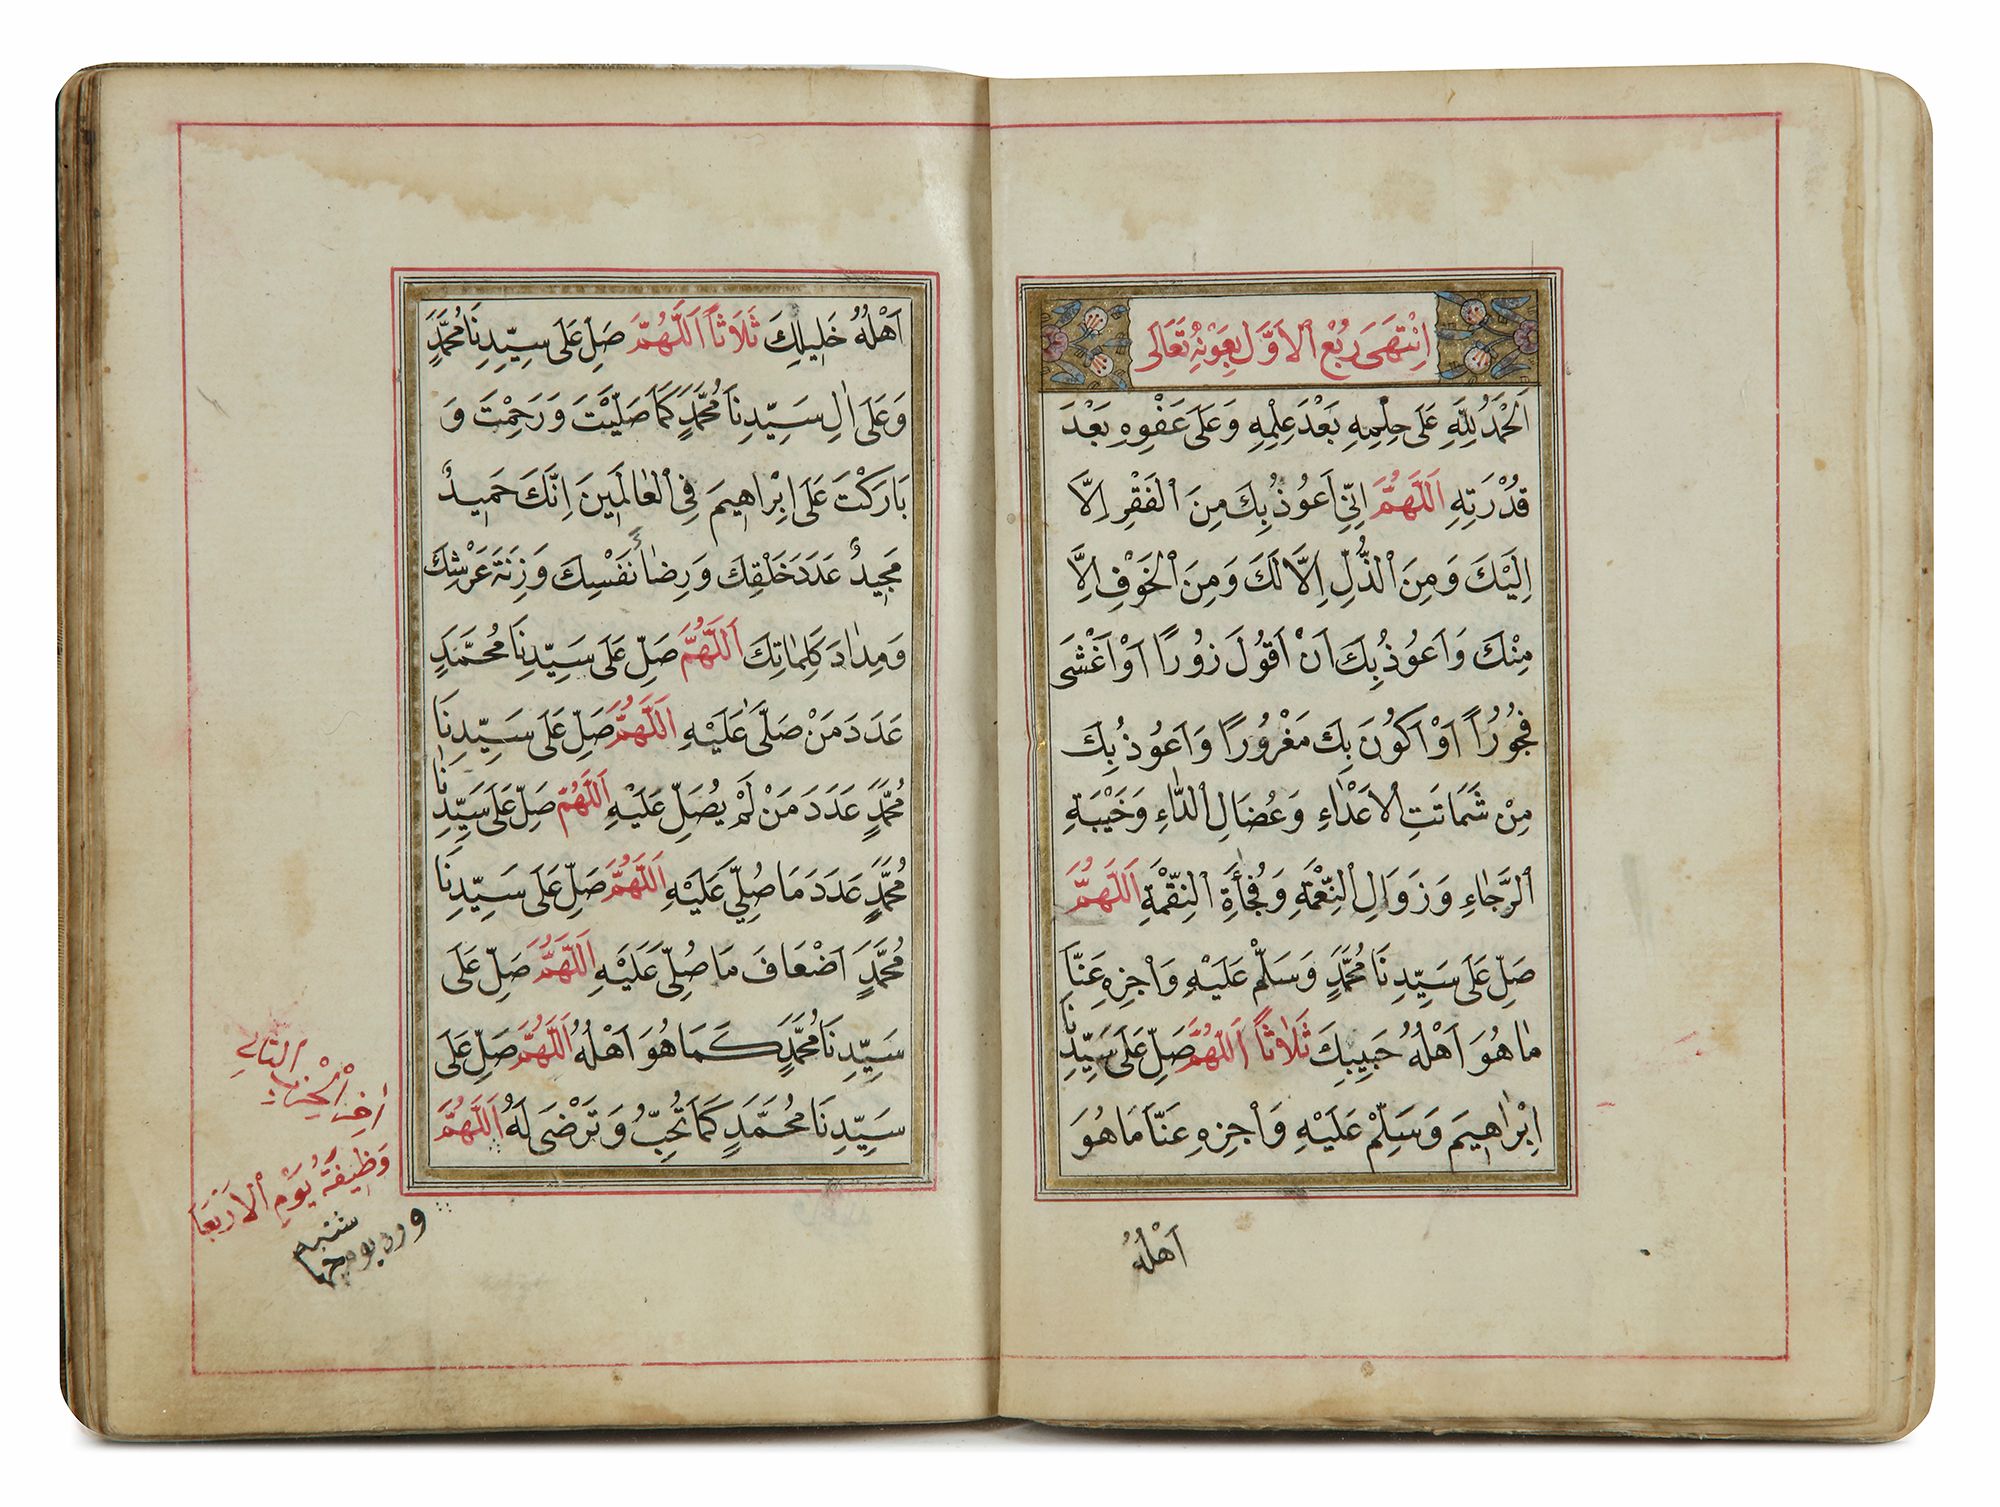 اِنْتَهَى رُبْعِ الْاَوَّلِ بِعَوْنِهِ تَعَالَى
اَلْحَمْدُ لِلّٰهِ عَلَى حِلْمِهِ بَعْدَ عِلْمِهِ وَعَلَى عَفْوِهِ بَعْدَ
قُدْرَتِهِ اَللّٰهُمَّ اِنِّي اَعُوذُ بِكَ مِنَ الْفَقْرِ اِلَّا
اِلَيْكَ وَمِنَ الذُّلِّ اِلَّا لَكَ وَمِنَ الْخَوْفِ اِلَّا
مِنْكَ وَاَعُوذُ بِكَ اَنْ اَقُولَ زُورًا اَوْ اَغْشَى
فُجُورًا اَوْ اَكُونَ بِكَ مَغْرُورًا وَاَعُوذُ بِكَ
مِنْ شَمَاتَتِ الْاَعْدَاءِ وَعُضَالِ الدَّاءِ وَخَيْبَةِ
الرَّجَاءِ وَزَوَالِ النِّعْمَةِ وَفُجْأَةِ النِّقْمَةِ اَللّٰهُمَّ
صَلِّ عَلَى سَيِّدِنَا مُحَمَّدٍ وَسَلِّمْ عَلَيْهِ وَاجْزِهِ عَنَّا
مَا هُوَ اَهْلُهُ حَبِيبِكَ ثَلَاثًا اَللّٰهُمَّ صَلِّ عَلَى سَيِّدِنَا
اِبْرَاهِيمَ وَسَلِّمْ عَلَيْهِ وَاجْزِهِ عَنَّا مَا هُوَ
اَهْلُهُ
اَهْلُهُ خَلِيلِكَ ثَلَاثًا اَللّٰهُمَّ صَلِّ عَلَى سَيِّدِنَا مُحَمَّدٍ
وَعَلَى اٰلِ سَيِّدِنَا مُحَمَّدٍ كَمَا صَلَّيْتَ وَرَحِمْتَ وَ
بَارَكْتَ عَلَى اِبْرَاهِيمَ فِي الْعَالَمِينَ اِنَّكَ حَمِيدٌ
مَجِيدٌ عَدَدَ خَلْقِكَ وَرِضَاءَ نَفْسِكَ وَزِنَةَ عَرْشِكَ
وَمِدَادَ كَلِمَاتِكَ اَللّٰهُمَّ صَلِّ عَلَى سَيِّدِنَا مُحَمَّدٍ
عَدَدَ مَنْ صَلَّى عَلَيْهِ اَللّٰهُمَّ صَلِّ عَلَى سَيِّدِنَا
مُحَمَّدٍ عَدَدَ مَنْ لَمْ يُصَلِّ عَلَيْهِ اَللّٰهُمَّ صَلِّ عَلَى سَيِّدِنَا
مُحَمَّدٍ عَدَدَ مَا صُلِّيَ عَلَيْهِ اَللّٰهُمَّ صَلِّ عَلَى سَيِّدِنَا
مُحَمَّدٍ اَضْعَافَ مَا صُلِّيَ عَلَيْهِ اَللّٰهُمَّ صَلِّ عَلَى
سَيِّدِنَا مُحَمَّدٍ كَمَا هُوَ اَهْلُهُ اَللّٰهُمَّ صَلِّ عَلَى
سَيِّدِنَا مُحَمَّدٍ كَمَا تُحِبُّ وَتَرْضَى لَهُ اَللّٰهُمَّ
اٰخِرُ الْحِزْبِ
الثَّانِي
وَظِيفَةُ يَوْمِ الْاَرْبَعَا
ورد يوم چهار
شنبه